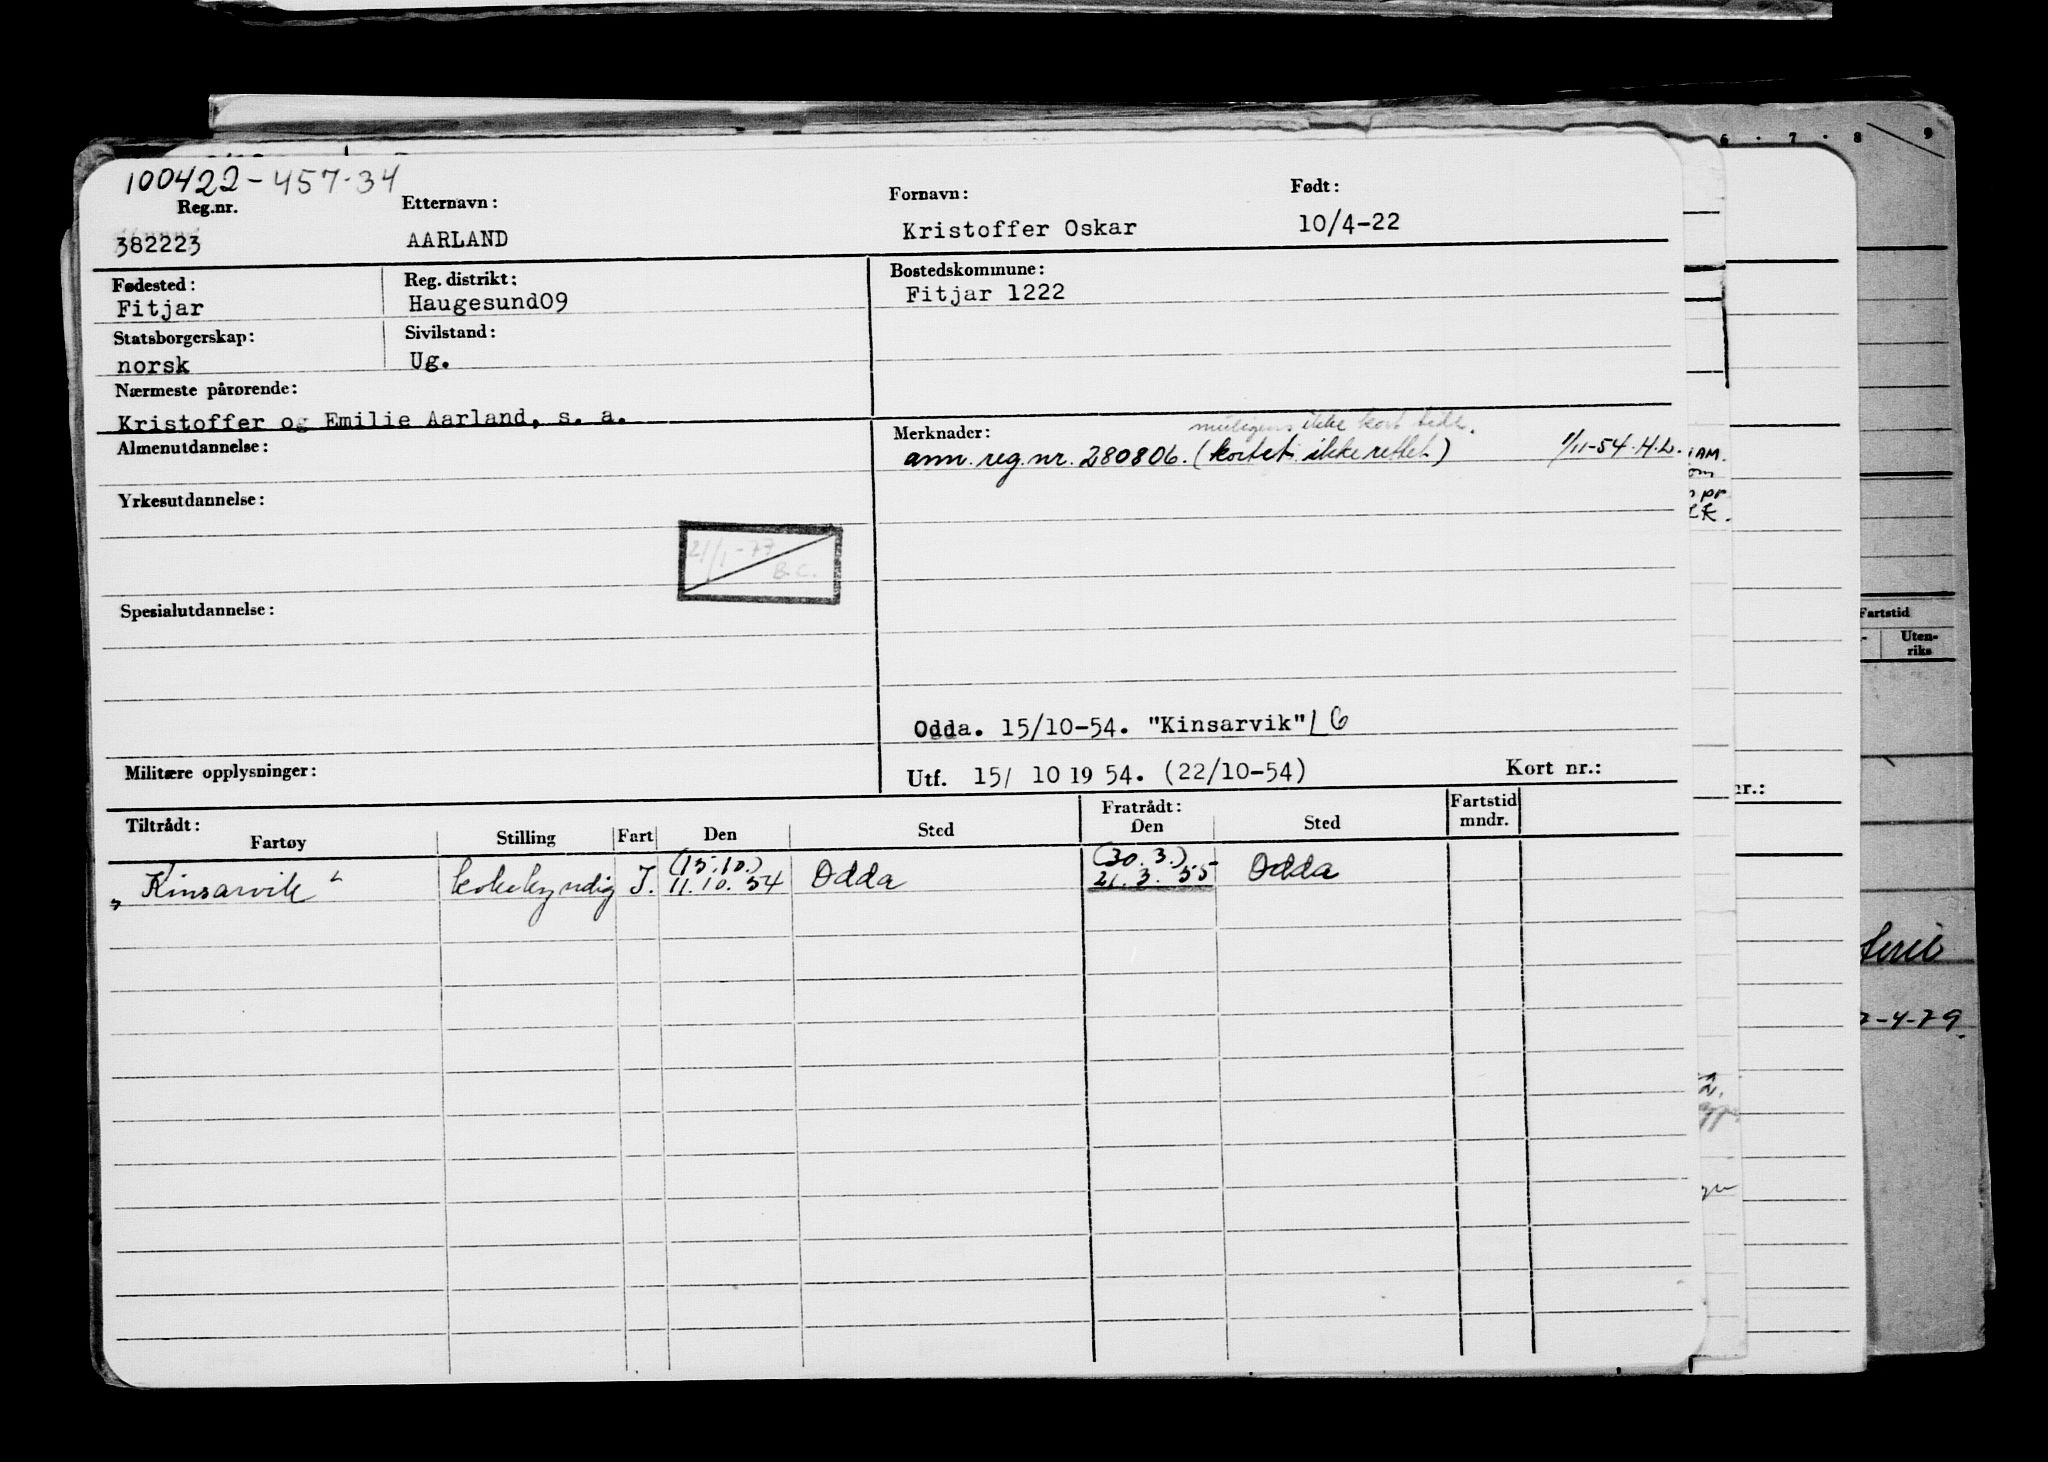 100422-457-34
Reg.nr. Etternavn: Fornavn: Født:
382223 AARLAND Kristoffer Oskar 10/4-22
Fødested: Reg. distrikt: Bostedskommune:
Fitjar Haugesund09 Fitjar 1222
Statsborgerskap: Sivilstand:
norsk Ug.
Nærmeste pårørende:
Kristoffer og Emilie Aarland, s. a.
muligens ikke kort
Almenutdannelse: Merknader:
ann. reg. nr. 280806. (kortet ikke rettet) 1/11-54. H.L.
Yrkesutdannelse:
21/1-77
B.C.
Spesialutdannelse:
Odda. 15/10-54. "Kinsarvik" L6
Militære opplysninger: Utf. 15/ 10 19 54. (22/10-54) Kort nr.:
Tiltrådt: Fratrådt: Fartstid mndr.
Fartøy Stilling Fart Den Sted Den Sted
(15.10.) (30. 3.)
"Kinsarvik" kokekyndig I. 11. 10. 54 Odda 21. 3. 55 Odda
6 · 7 · 8 9
IAM.
om
pr
Fartstid
Uten-
riks
nr.:
-4-79